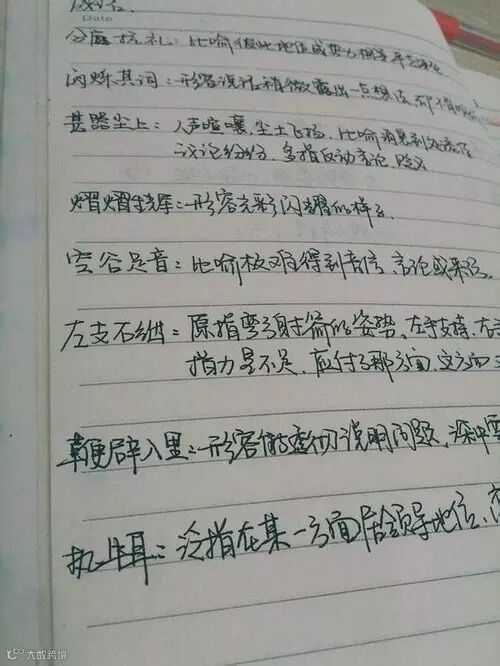 成语
Date
分庭抗礼：比喻彼此地位或势力相等平起平坐
闪烁其词：形容说话稍微露出一点想法，却不肯
甚嚣尘上：人声喧嚷，尘土飞扬。比喻消息到处流传
议论纷纷，多指反动言论，贬义
熠熠生辉：形容光彩闪耀的样子
空谷足音：比喻极难得到音信、言论或来访。
左支右绌：原指弯弓射箭的姿势，左手支持，右
指力量不足，应付了那方面，这方面
鞭辟入里：形容能透彻说明问题，深中要
执牛耳：泛指在某一方面居领导地位。
大数跨境